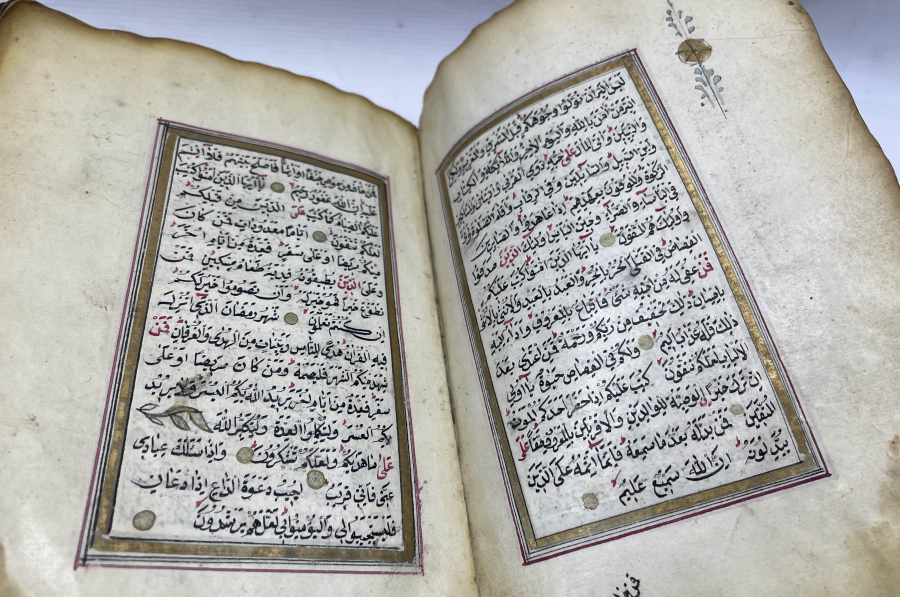 ليس البر ان تولوا وجوهكم قبل المشرق والمغرب ولكن
البر من امن بالله واليوم الاخر والملئكة والكتاب
والنبيين واتى المال على حبه ذوي القربى واليتامى والمساكين
وابن السبيل والسائلين وفي الرقاب واقام الصلوة واتى
الزكوة والموفون بعهدهم اذا عاهدوا والصابرين
في الباساء والضراء وحين الباس اولئك الذين صدقوا
واولئك هم المتقون يا ايها الذين امنوا كتب عليكم
القصاص في القتلى الحر بالحر والعبد بالعبد والانثى بالانثى
فمن عفي له من اخيه شئ فاتباع بالمعروف واداء اليه
باحسان ذلك تخفيف من ربكم ورحمة فمن اعتدى بعد
ذلك فله عذاب اليم ولكم في القصاص حيوة يا اولي
الالباب لعلكم تتقون كتب عليكم اذا حضر احدكم الموت
ان ترك خيرا الوصية للوالدين والاقربين بالمعروف حقا على
المتقين فمن بدله بعد ما سمعه فانما اثمه على الذين
يبدلونه ان الله سميع عليم
فمن خاف من موص جنفا او اثما فاصلح بينهم فلا اثم
عليه ان الله غفور رحيم يا ايها الذين امنوا كتب
عليكم الصيام كما كتب على الذين من قبلكم
لعلكم تتقون اياما معدودات فمن كان
منكم مريضا او على سفر فعدة من ايام اخر
وعلى الذين يطيقونه فدية طعام مسكين فمن
تطوع خيرا فهو خير له وان تصوموا خير لكم
ان كنتم تعلمون شهر رمضان الذي انزل
فيه القران هدى للناس وبينات من الهدى والفرقان فمن
شهد منكم الشهر فليصمه ومن كان مريضا او على
سفر فعدة من ايام اخر يريد الله بكم اليسر ولا يريد
بكم العسر ولتكملوا العدة ولتكبروا الله
على ما هديكم ولعلكم تشكرون واذا سالك عبادي
عني فاني قريب اجيب دعوة الداع اذا دعان
فليستجيبوا لي وليؤمنوا بي لعلهم يرشدون